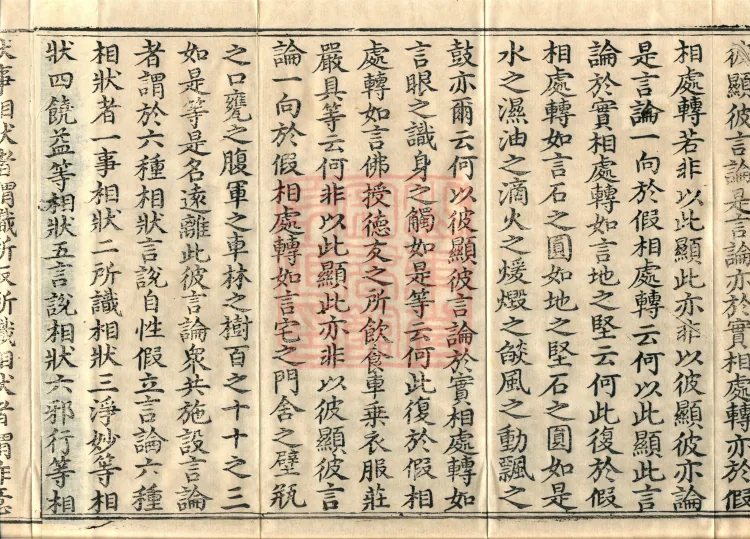 彼顯彼言論是言論亦於實相處轉亦於假
相處轉若非以此顯此亦非以彼顯彼亦論
是言論一向於假相處轉云何以此顯此言
論於實相處轉如言地之堅云何此復於假
相處轉如言石之圓如地之堅石之圓如是
水之濕油之滴火之煖燈之𦦨風之動飄之
鼓亦爾云何以彼顯彼言論於實相處轉如
言眼之識身之觸如是等云何此復於假相
處轉如言佛授德友之所飲食車乗衣服莊
嚴具等云何非以此顯此亦非以彼顯彼言
論一向於假相處轉如言宅之門舍之壁瓶
之口甕之腹軍之車林之樹百之十十之三
如是等是名遠離此彼言論衆共施設言論
者謂於六種相狀言說自性假立言論六種
相狀者一事相狀二所識相狀三淨妙等相
狀四饒益等相狀五言說相狀六邪行等相
狀事相狀者謂識所取所識相狀者謂作意